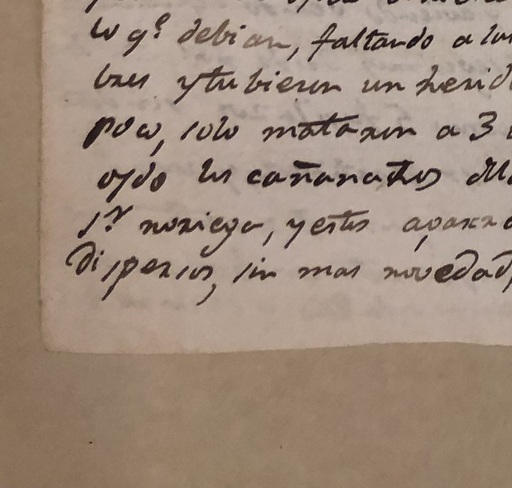 lo q.e debian, faltando a los
bres y tubieron un herido
poco, solo mataron a 3
oydo los cañanates del
s.r noriega, y estos aparec
Dispersos, sin mas novedad,